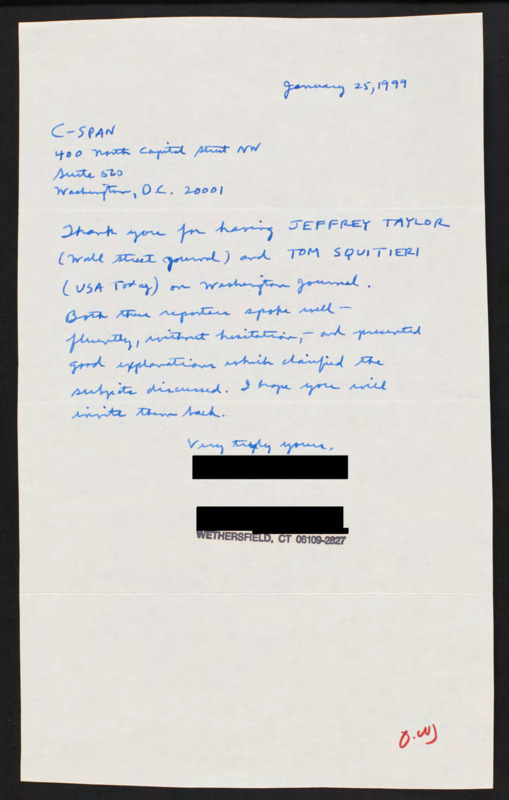 January 25, 1999
C-SPAN
400 North Capitol Street NW
Suite 550
Washington, D.C. 20001
Thank you for having JEFFREY TAYLOR
(Wall Street Journal) and TOM SQUITIERI
(USA Today) on Washington Journal.
Both these reporters spoke well –
fluently, without hesitation, – and presented
good explanations which clarified the
subjects discussed. I hope you will
invite them back.
Very truly yours,
WETHERSFIELD, CT 06109-2827